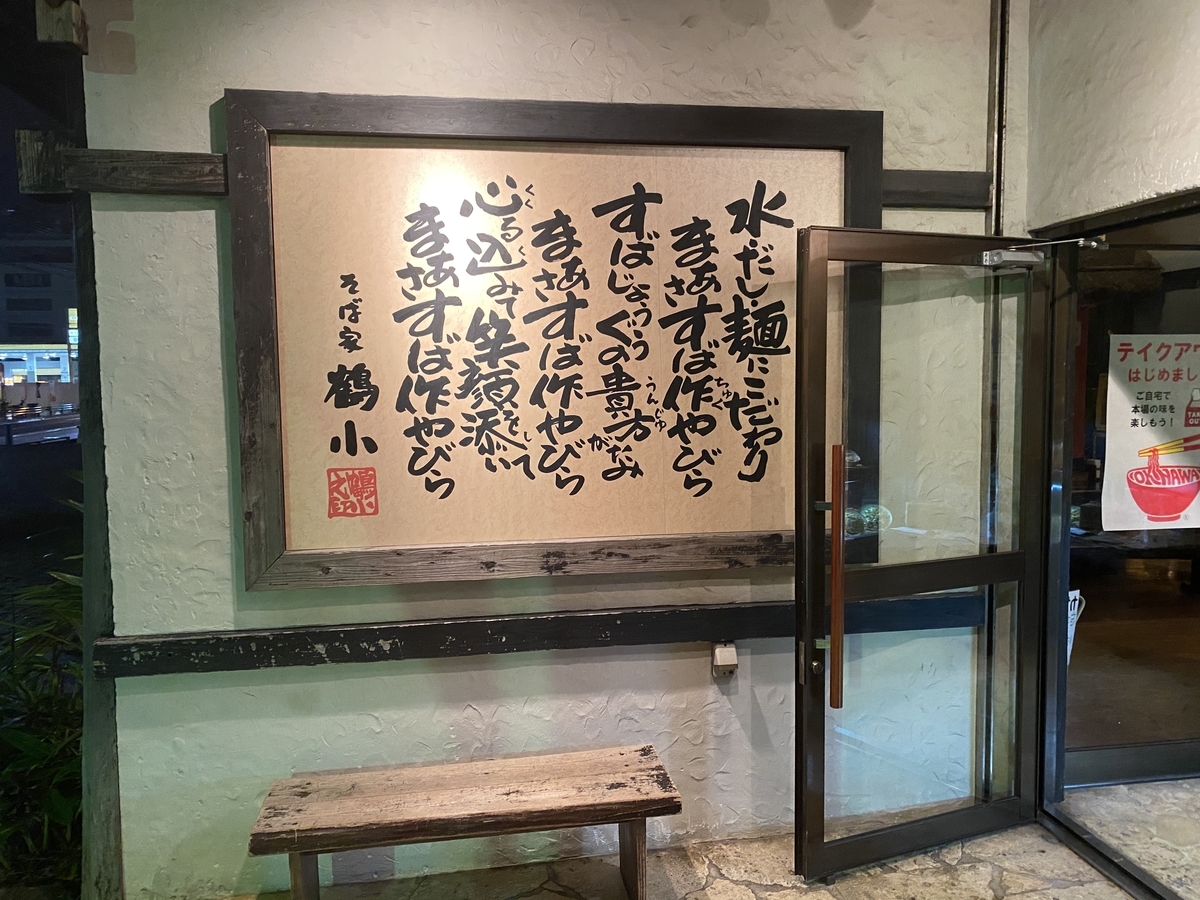 水・だし・麺にこだわり
まあさすば作やびら
ちゅく
すばじょううぐの貴方がなみ
うんじゅ
まあさすば作やびら
心る込みて笑顔添いをして
くく
く
まあさすば作やびら
そば家 鶴小
テイクアウ
はじめまし
ご自宅で
本場の味を
楽しもう！
OKINAWA